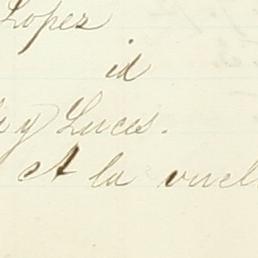 Lopez
id
y Luces.
A la vuel